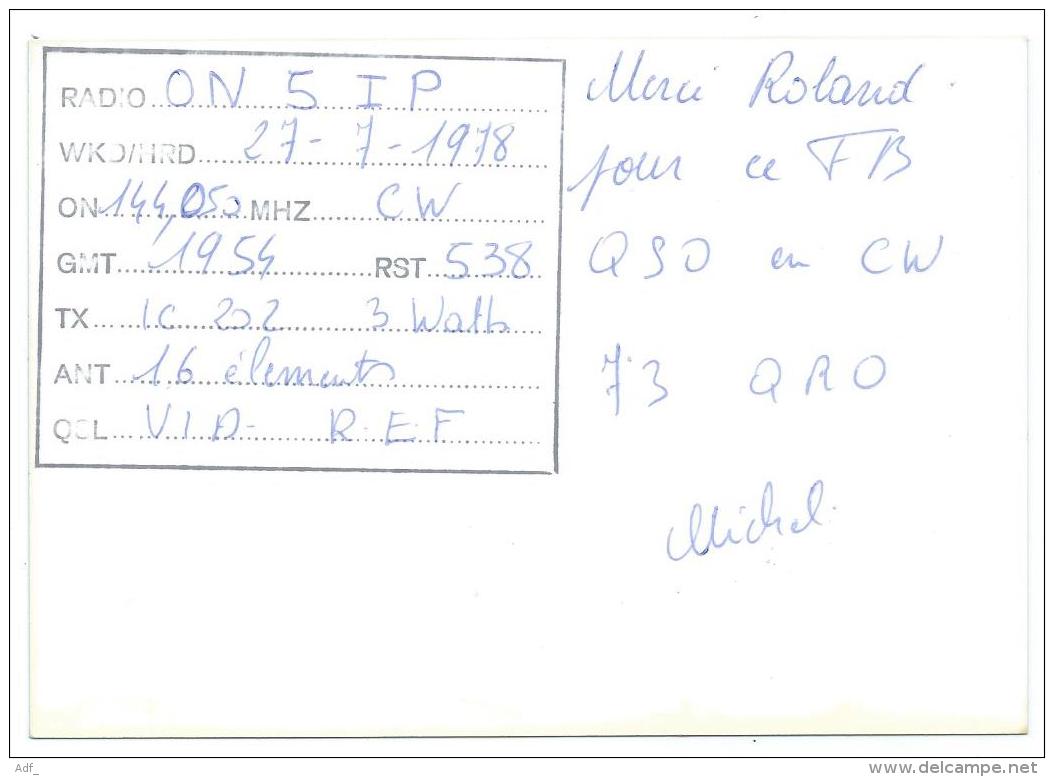 RADIO ON 5 I P
WKD/HRD 27-7-1978
ON 144,050 MHZ CW
GMT 1954 RST 538
TX IC 202 3 Watts
ANT 16 élements
QSL VIA R.E.F
Merci Roland
pour ce FB
QSO en CW
73 QRO
Michel.
Adf_
www.delcampe.net